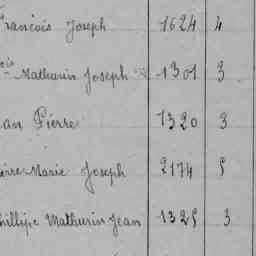 François Joseph 1624 4
ois Mathurin Joseph 1301 3
ean Pierre 1320 3
ierre Marie Joseph 2174 5
hillipe Mathurin Jean 1325 3